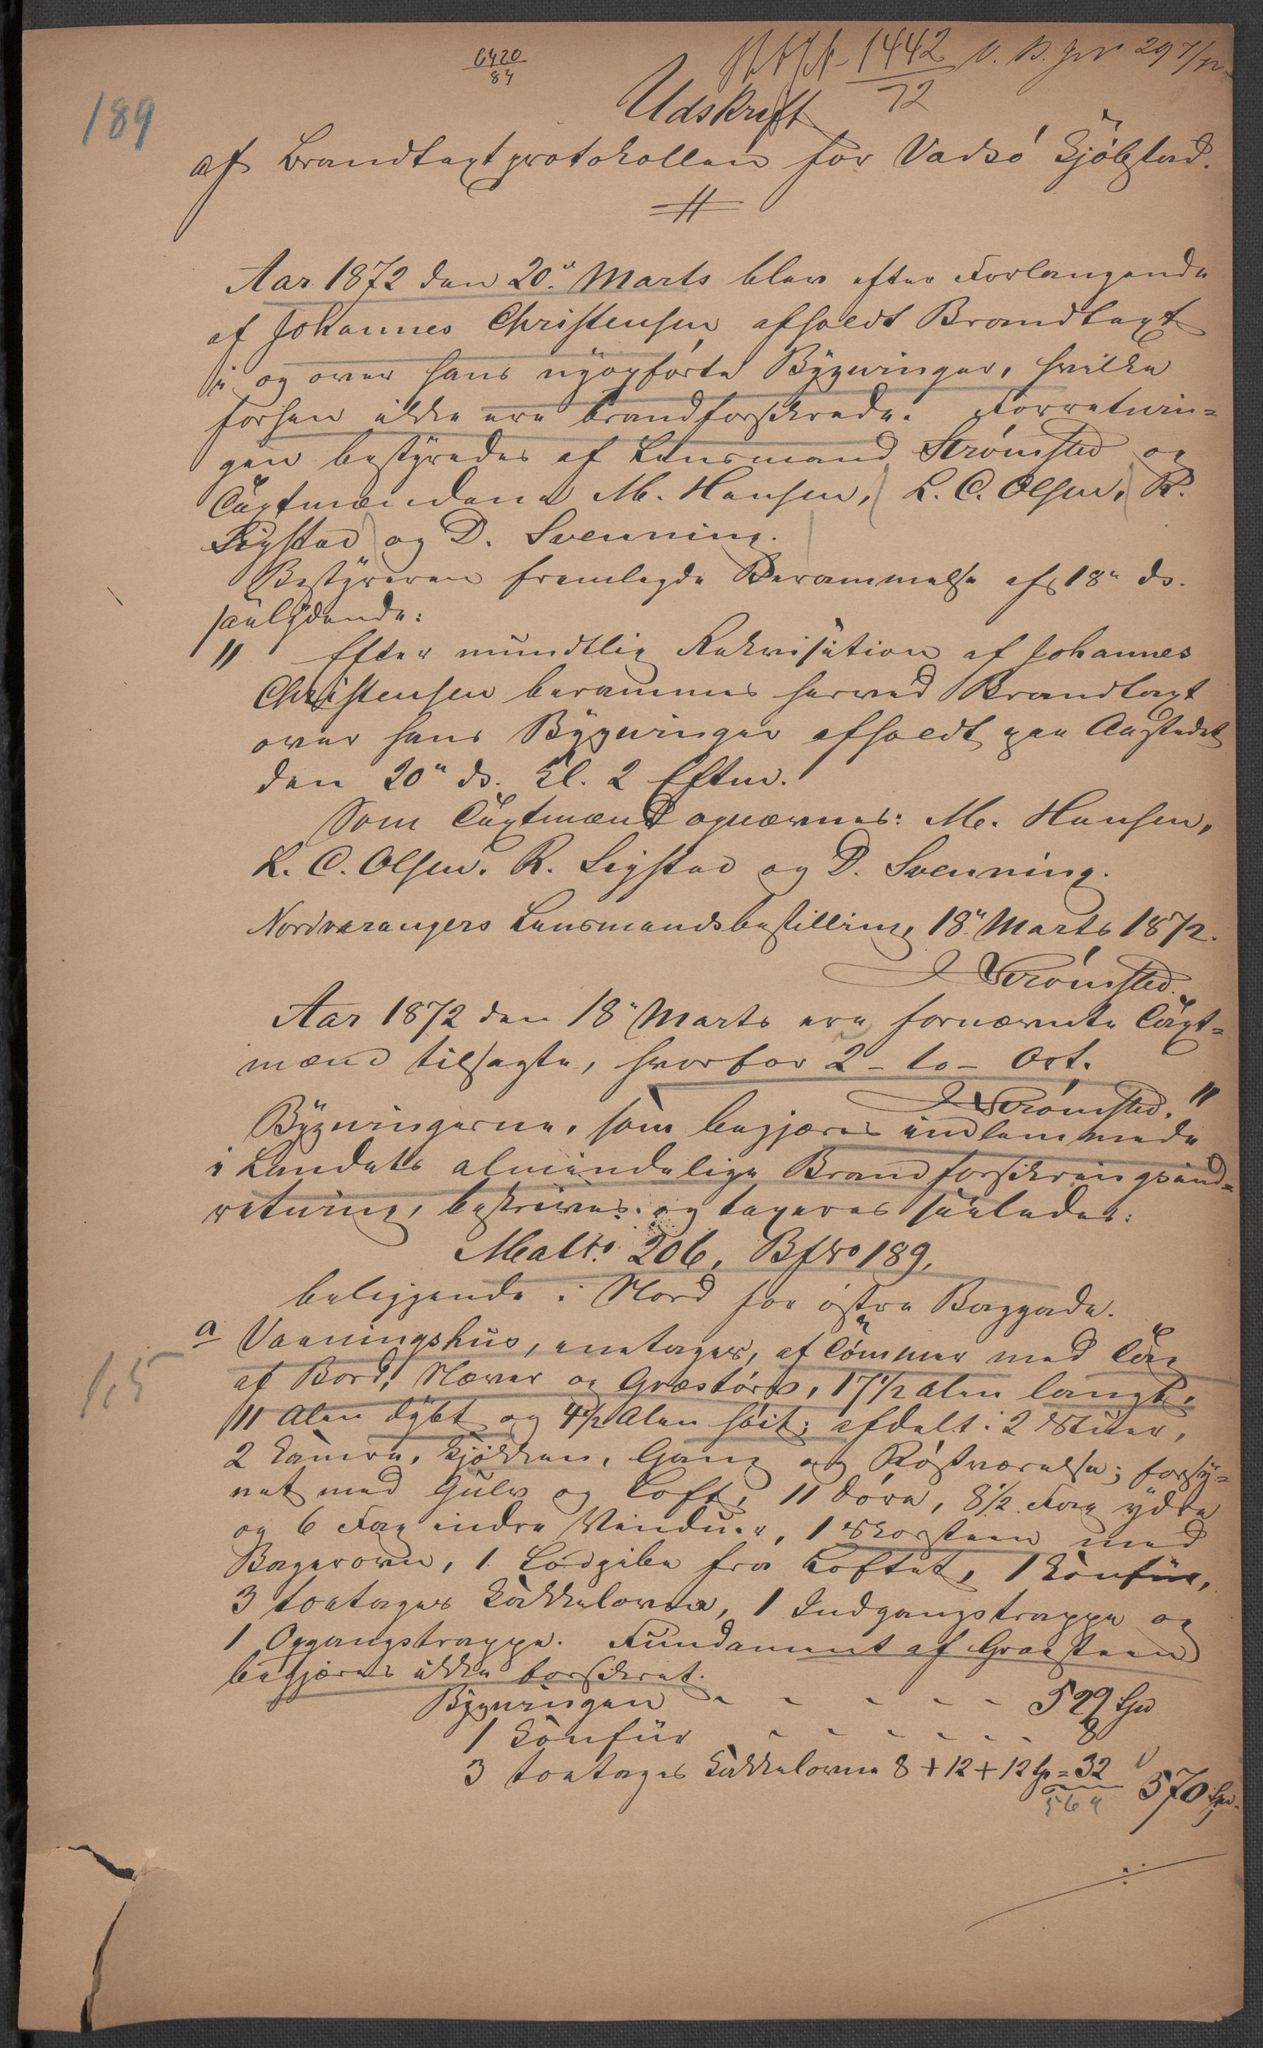 6420
84
1442
72
189
Udskrift
af Brandtaxtprotokollen for Vadsö Kjöbstad.
Aar 1872 den 20" Marts blev efter Forlangende
af Johannes Christensen afholdt Brandtaxt
i og over hans nyopförte Bygninger, hvilke
forhen ikke ere brandforsikrede. Forretnin-
gen bestyredes af Lensmand Strömsted og
Taxtmændene M. Hansen, L. C. Olsen, R.
Sigstad og D. Svenning.
Bestyreren fremlagde Berammelse af 18" ds.
saalydende:
" Efter mundtlig Rekvisition af Johannes
Christensen berammes herved Brandtaxt
over hans Bygninger afholdt paa Aastedet
den 20" ds. Kl. 2 Efterm.
Som Taxtmænd opnævnes: M. Hansen,
L. C. Olsen, R. Sigstad og D. Svenning.
Nordvarangers Lensmandsbestilling, 18" Marts 1872.
Strömsted.
Aar 1872 den 18" Marts ere fornævnte Taxt-
mænd tilsagte, hvorfor 2 - to - Ort.
Strömsted. "
Bygningerne, som begjæres indlemmede
i Landets almindelige Brandforsikringsind-
retning, beskrives og taxeres saaledes:
Mattr. 206, Bfno 189,
beliggende i Nord for östre Baggade.
a Vaaningshus, enetages, af Tömmer med Tag
af Bord, Næver og Græstörv, 17 1/2 Alen langt,
11 Alen dybt og 4 1/2 Alen höit; afdelt i 2 Stuer,
2 Kamre, Kjökken, Gang og Röstværelse; forsy-
net med Gulv og Loft, 11 Döre, 8 1/2 Fag ydre
og 6 Fag indre Vinduer, 1 Skorsteen med
Bagerovn, 1 Lodpibe fra Loftet, 1 Komfur,
3 toetages Kakkelovne, 1 Indgangstrappe og
1 Opgangstrappe. Fundament af Graasteen
begjæres ikke forsikret.
Bygningen - - - - - 529 Spd
1 Komfur - - - - - - 8
3 toetages Kakkelovne 8 + 12 + 12 Sp = 32
569
570 Spd.